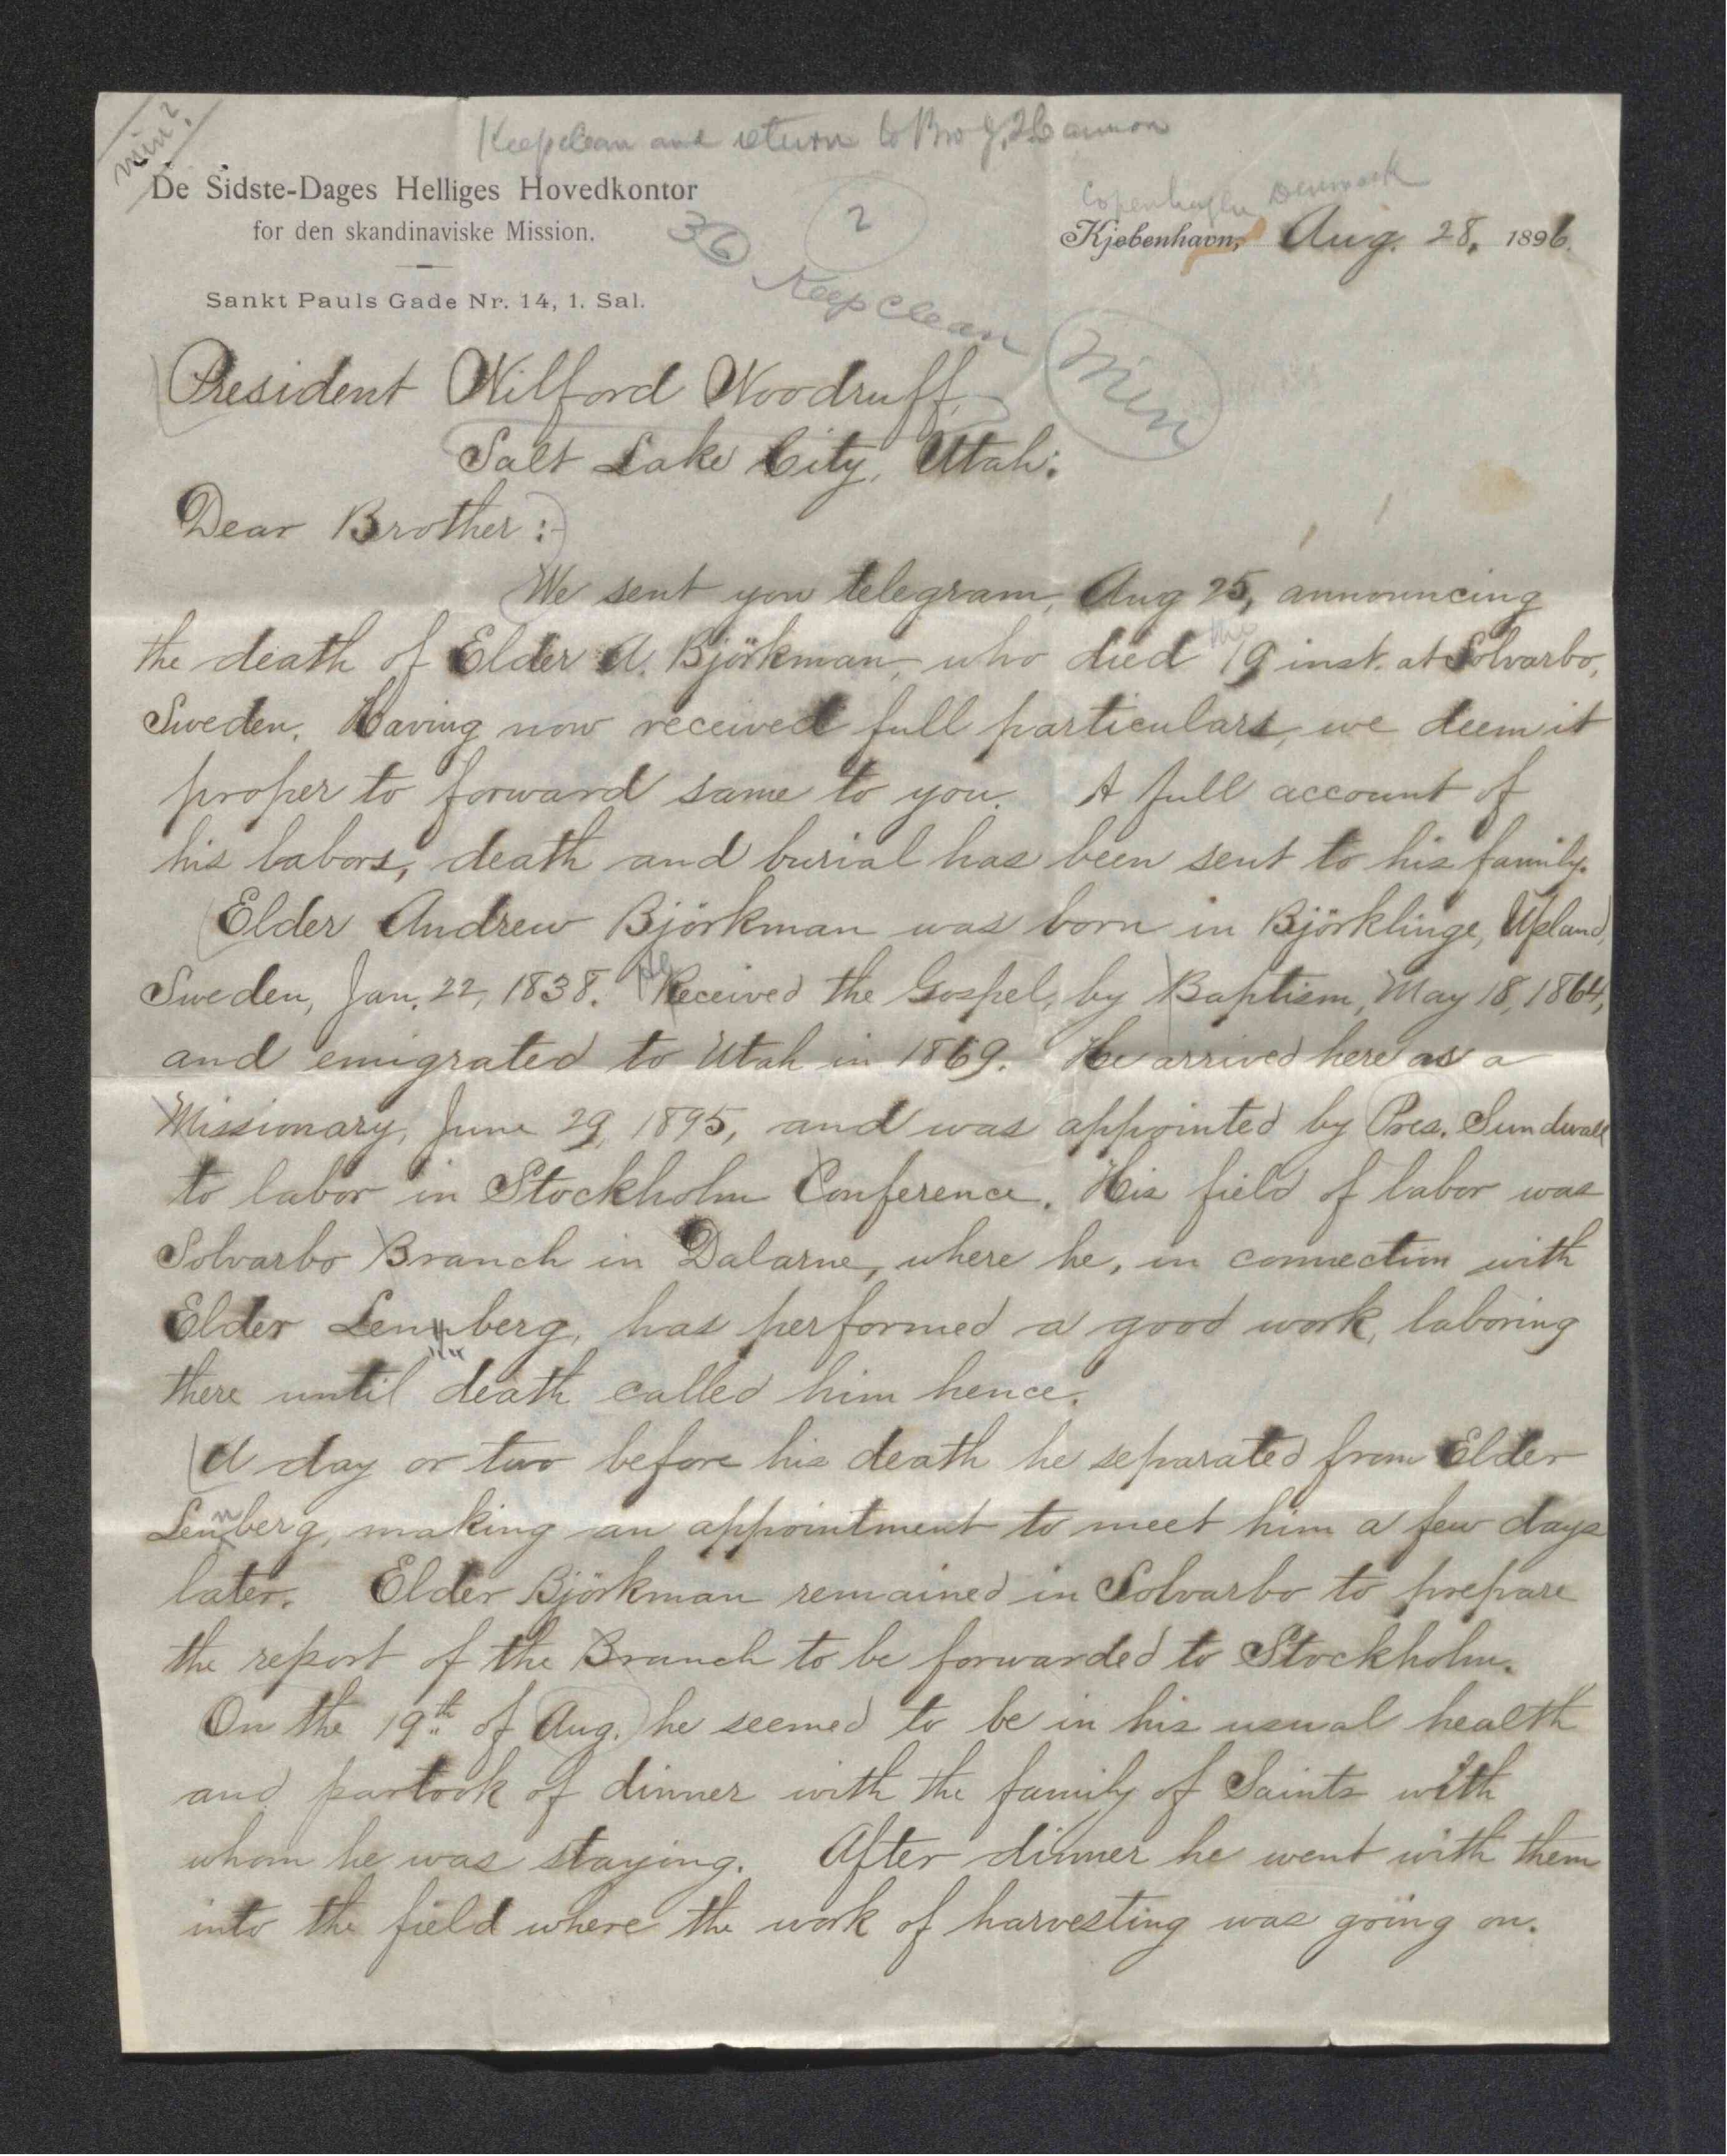 min?
Keep clean and return to Bro G. Q. Cannon
De Sidste-Dages Helliges Hovedkontor
for den skandinaviske Mission.
Sankt Pauls Gade Nr. 14, 1. Sal.
36
2
Keep clean
Copenhagen Denmark
Kjøbenhavn, Aug. 28, 1896.
min
President Wilford Woodruff,
Salt Lake City, Utah:
Dear Brother:-
We sent you telegram, Aug 25, announcing
the death of Elder A. Björkman, who died the 19 inst. at Solvarbo,
Sweden. Having now received full particulars, we deem it
proper to forward same to you. A full account of
his labors, death and burial has been sent to his family.
Elder Andrew Björkman was born in Björklinge, Upland,
Sweden, Jan. 22, 1838. He Received the Gospel, by Baptism, May 18, 1864,
and emigrated to Utah in 1869. He arrived here as a
Missionary, June 29, 1895, and was appointed by Pres. Sundwall
to labor in Stockholm Conference. His field of labor was
Solvarbo Branch in Dalarne, where he, in connection with
Elder Lennberg, has performed a good work, laboring
there until death called him hence.
A day or two before his death he separated from Elder
Lennberg, making an appointment to meet him a few days
later. Elder Björkman remained in Solvarbo to prepare
the report of the Branch to be forwarded to Stockholm.
On the 19th of Aug. he seemed to be in his usual health
and partook of dinner with the family of Saints with
whom he was staying. After dinner he went with them
into the field where the work of harvesting was going on.